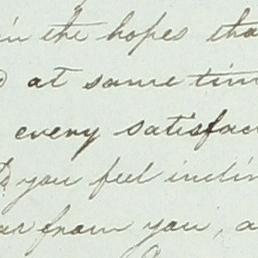 in the hopes tha
at same tim
every satisfac
you feel inclin
ar from you, a